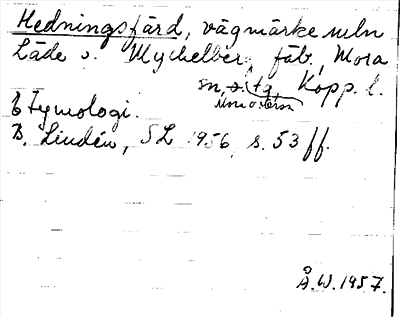 Hedningsfärd, vägmärke meln
Låde o. Myckelberg fäb. Mora
sn, o. tg, Kopp. l.
Mora o. Orsa
Etymologi.
B. Lindén, SL 1956, s. 53 ff.
Å. W. 1957.